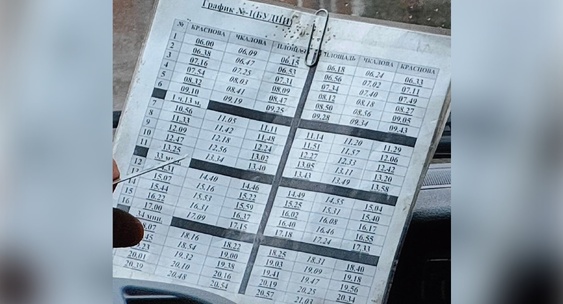 График №1(БУДНИ)
№ КРАСНОВА ЧКАЛОВА ПЛОЩАДЬ ПЛОЩАДЬ ЧКАЛОВА КРАСНОВА
1 06.00 06.09 06.15 06.18 06.24 06.33
2 06.38 06.47 06.53 06.56 07.02 07.11
3 07.16 07.25 07.31 07.34 07.40 07.49
4 07.54 08.03 08.09 08.12 08.18 08.27
5 08.32 08.41 08.47 08.50 08.56 09.05
6 09.10 09.19 09.25 09.28 09.34 09.43
7 1 ч.13 м.
8 10.56 11.05 11.11 11.14 11.20 11.29
9 11.33 11.42 11.48 11.51 11.57 12.06
10 12.09 12.18 12.24 12.27 12.33 12.42
11 12.47 12.56 13.02 13.05 13.11 13.20
13.25 13.34 13.40 13.43 13.49 13.58
33 мин
14.31 14.40 14.46 14.49 14.55 15.04
15.07 15.16 15.22 15.25 15.31 15.40
15 15.44 15.53 15.59 16.02 16.08 16.17
16 16.22 16.31 16.37 16.40 16.46 16.55
17.00 17.09 17.15 17.18 17.24 17.31
34 мин.
8.07 18.16 18.22 18.25 18.31 18.40
18.54 19.00 19.03 19.09 19.18
19.32 19.38 19.41 19.47 19.56
20.01 20.10 20.16 20.19 20.25 20.34
20.39 20.48 20.54 20.57 21.03